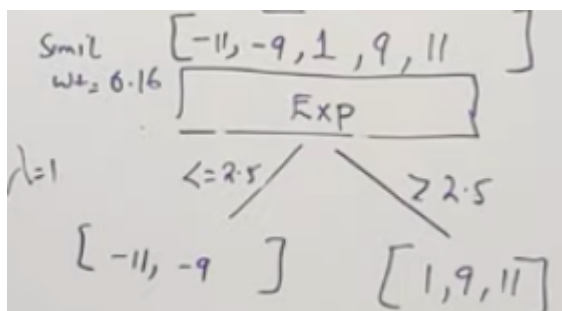 Smil [-11, -9, 1, 9, 11 ]
wt= 0.16
Exp
λ=1 <=2.5 ≥ 2.5
[ -11, -9 ] [ 1, 9, 11 ]